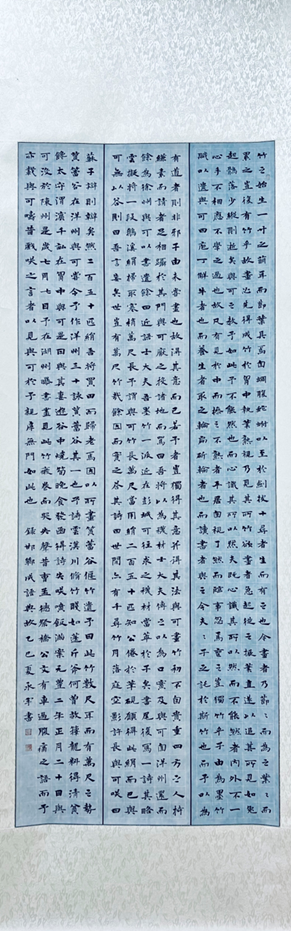 竹之始生一寸之萌耳而節葉具焉自蜩腹蛇蚹以至於劍拔十尋者生而有之也今畫者乃節節而為之葉葉而
累之豈復有竹乎故畫竹必先得成竹於胸中執筆熟視乃見其所欲畫者急起從之振筆直遂以追其所見如兔
起鶻落少縱則逝矣與可之教予如此予不能然也而心識其所以然夫既心識其所以然而不能然者內外不一
心手不相應不學之過也故凡有見於中而操之不熟者平居自視了然而臨事忽焉喪之豈獨竹乎子由為墨竹
賦以遺與可曰庖丁解牛者也而養生者取之輪扁斲輪者也而讀書者與之今夫夫子之託於斯竹也而予以為
有道者則非邪子由未嘗畫也故得其意而已若予者豈獨得其意并得其法與可畫竹初不自貴重四方之人持
縑素而請者足相躡於其門與可厭之投諸地而罵曰吾將以為襪材士大夫傳之以為口實及與可自洋州還而
余為徐州與可以書遺余曰近語士大夫吾墨竹一派近在彭城可往求之襪材當萃於子矣書尾復寫一詩其略
云擬將一段鵝溪絹掃取寒梢萬尺長予謂與可竹長萬尺當用絹二百五十匹知公倦於筆硯願得此絹而已與
可無以答則曰吾言妄矣世豈有萬尺竹哉余因而實之答其詩曰世間亦有千尋竹月落庭空影許長與可笑曰
蘇子辯則辯矣然二百五十匹絹吾將買田而歸老焉因以所畫篔簹谷偃竹遺予曰此竹數尺耳而有萬尺之勢
篔簹谷在洋州與可嘗令予作洋州三十詠篔簹谷其一也予詩云漢川修竹賤如蓬斤斧何曾赦籜龍料得清貧
饞太守渭濱千畝在胸中與可是日與其妻游谷中燒筍晚食發函得詩失笑噴飯滿案元豐二年正月二十日與
可沒於陳州是歲七月七日予在湖州曝書畫見此竹廢卷而哭失聲昔曹孟德祭橋公文有車過腹痛之語而予
亦載與可疇昔戲笑之言者以見與可於予親厚無間如此也 錄邯鄲成語典故 乙巳夏永軍書